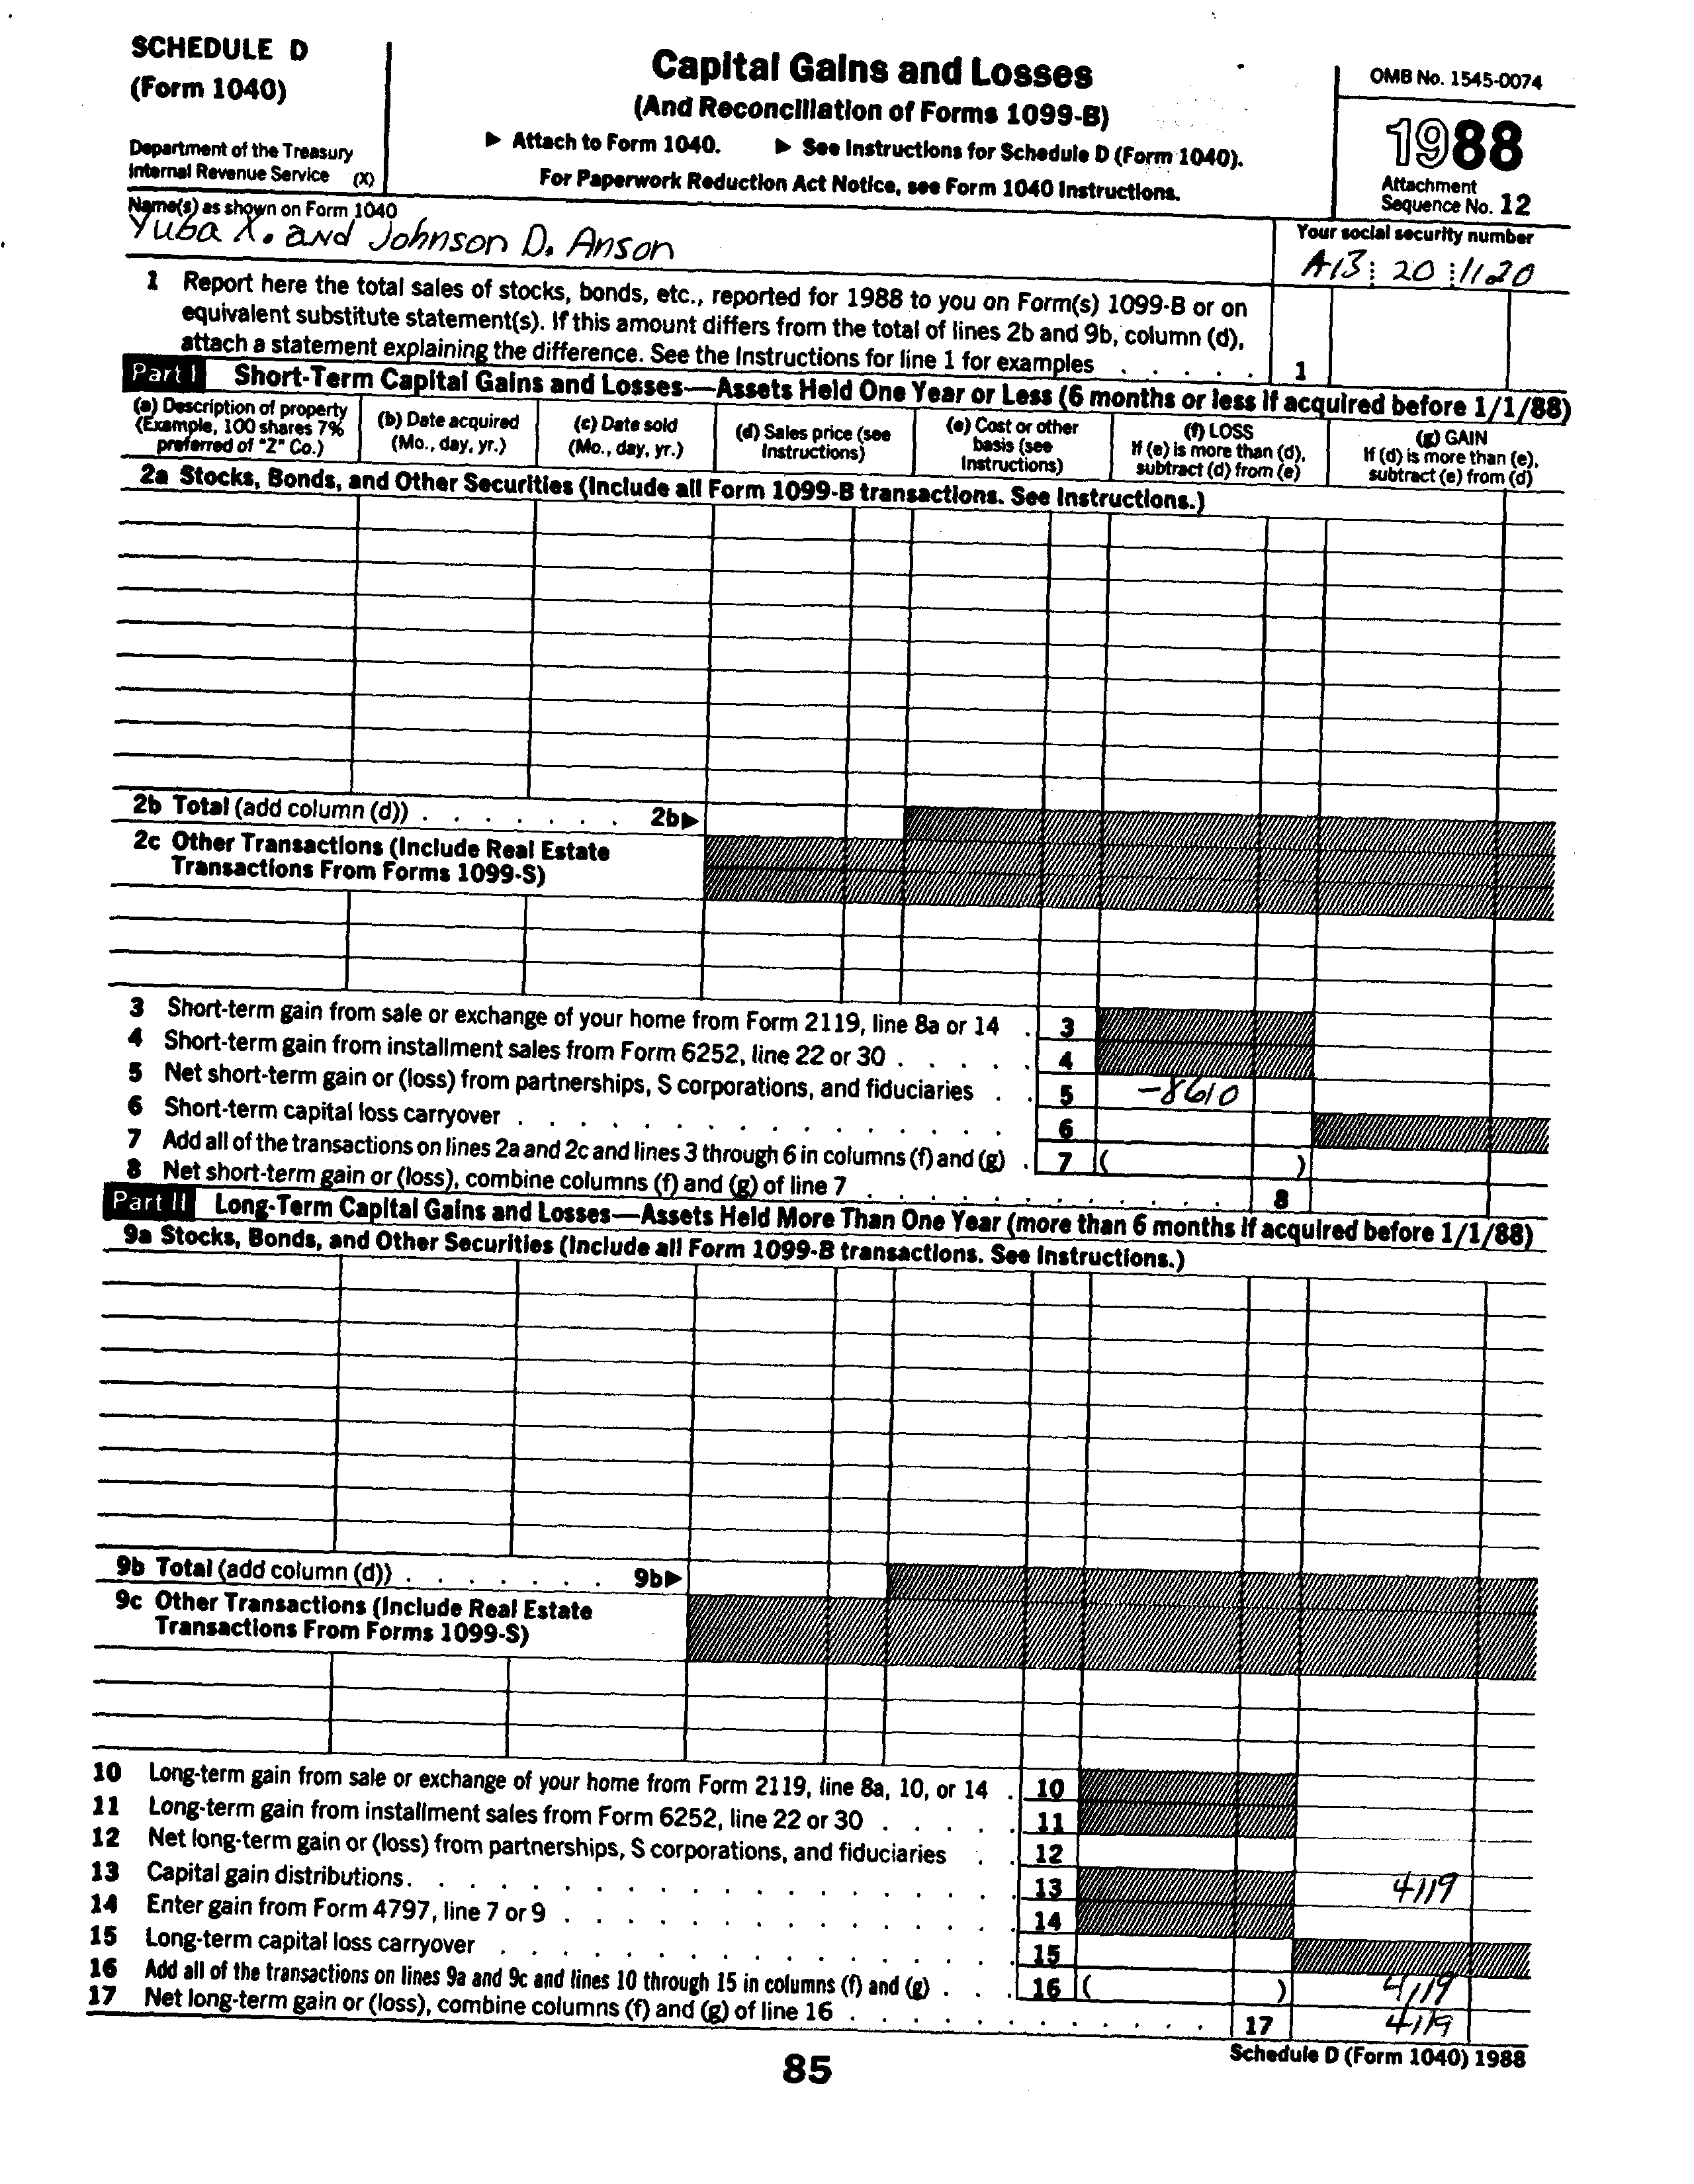 SCHEDULE D
(Form 1040)
Department of the Treasury
Internal Revenue Service (X)
Capital Gains and Losses
(And Reconciliation of Forms 1099-B)
▶ Attach to Form 1040. ▶ See Instructions for Schedule D (Form 1040).
For Paperwork Reduction Act Notice, see Form 1040 Instructions.
OMB No. 1545-0074
1988
Attachment
Sequence No. 12
Name(s) as shown on Form 1040
Yuba X. and Johnson D. Anson
Your social security number
A13 20 1120
1 Report here the total sales of stocks, bonds, etc., reported for 1988 to you on Form(s) 1099-B or on
equivalent substitute statement(s). If this amount differs from the total of lines 2b and 9b, column (d),
attach a statement explaining the difference. See the Instructions for line 1 for examples . . . . . 1
Part I Short-Term Capital Gains and Losses—Assets Held One Year or Less (6 months or less if acquired before 1/1/88)
(a) Description of property
(Example, 100 shares 7%
preferred of "Z" Co.)
(b) Date acquired
(Mo., day, yr.)
(c) Date sold
(Mo., day, yr.)
(d) Sales price (see
Instructions)
(e) Cost or other
basis (see
Instructions)
(f) LOSS
If (e) is more than (d),
subtract (d) from (e)
(g) GAIN
If (d) is more than (e),
subtract (e) from (d)
2a Stocks, Bonds, and Other Securities (Include all Form 1099-B transactions. See Instructions.)
2b Total (add column (d)) . . . . . . . 2b▶
2c Other Transactions (Include Real Estate
Transactions From Forms 1099-S)
3 Short-term gain from sale or exchange of your home from Form 2119, line 8a or 14 . 3
4 Short-term gain from installment sales from Form 6252, line 22 or 30 . . . . . 4
5 Net short-term gain or (loss) from partnerships, S corporations, and fiduciaries . . 5 -8610
6 Short-term capital loss carryover . . . . . . . . . . . . . . . . 6
7 Add all of the transactions on lines 2a and 2c and lines 3 through 6 in columns (f) and (g) . 7 ( )
8 Net short-term gain or (loss), combine columns (f) and (g) of line 7 . . . . . . . . . . . . 8
Part II Long-Term Capital Gains and Losses—Assets Held More Than One Year (more than 6 months if acquired before 1/1/88)
9a Stocks, Bonds, and Other Securities (Include all Form 1099-B transactions. See Instructions.)
9b Total (add column (d)) . . . . . . . 9b▶
9c Other Transactions (Include Real Estate
Transactions From Forms 1099-S)
10 Long-term gain from sale or exchange of your home from Form 2119, line 8a, 10, or 14 . 10
11 Long-term gain from installment sales from Form 6252, line 22 or 30 . . . . . 11
12 Net long-term gain or (loss) from partnerships, S corporations, and fiduciaries . . 12
13 Capital gain distributions. . . . . . . . . . . . . . . . . . . 13 4119
14 Enter gain from Form 4797, line 7 or 9 . . . . . . . . . . . . . . 14
15 Long-term capital loss carryover . . . . . . . . . . . . . . . . 15
16 Add all of the transactions on lines 9a and 9c and lines 10 through 15 in columns (f) and (g) . . . 16 ( ) 4119
17 Net long-term gain or (loss), combine columns (f) and (g) of line 16 . . . . . . . . . . . . 17 4119
Schedule D (Form 1040) 1988
85